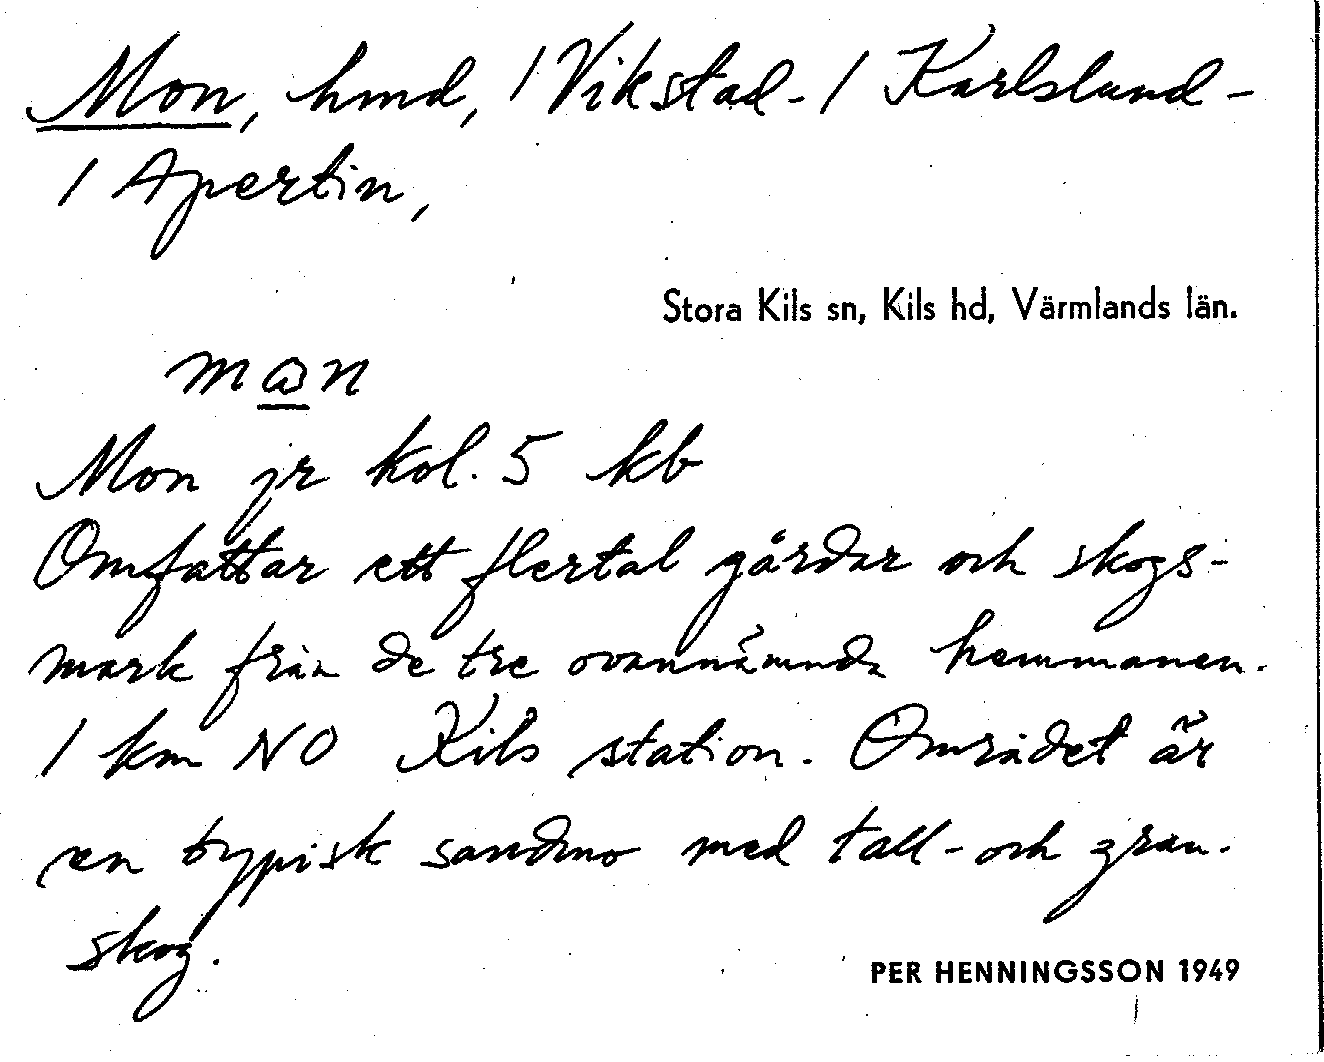 Mon, hmd, 1 Vikstad - 1 Karlslund -
1 Apertin,
Stora Kils sn, Kils hd, Värmlands län.
Mon jr kol. 5 kb
Omfattar ett flertal gårdar och skogs-
mark från de tre ovannämnda hemmanen.
1 km NO Kils station. Området är
en typisk sandmo med tall- och gran-
skog.
PER HENNINGSSON 1949